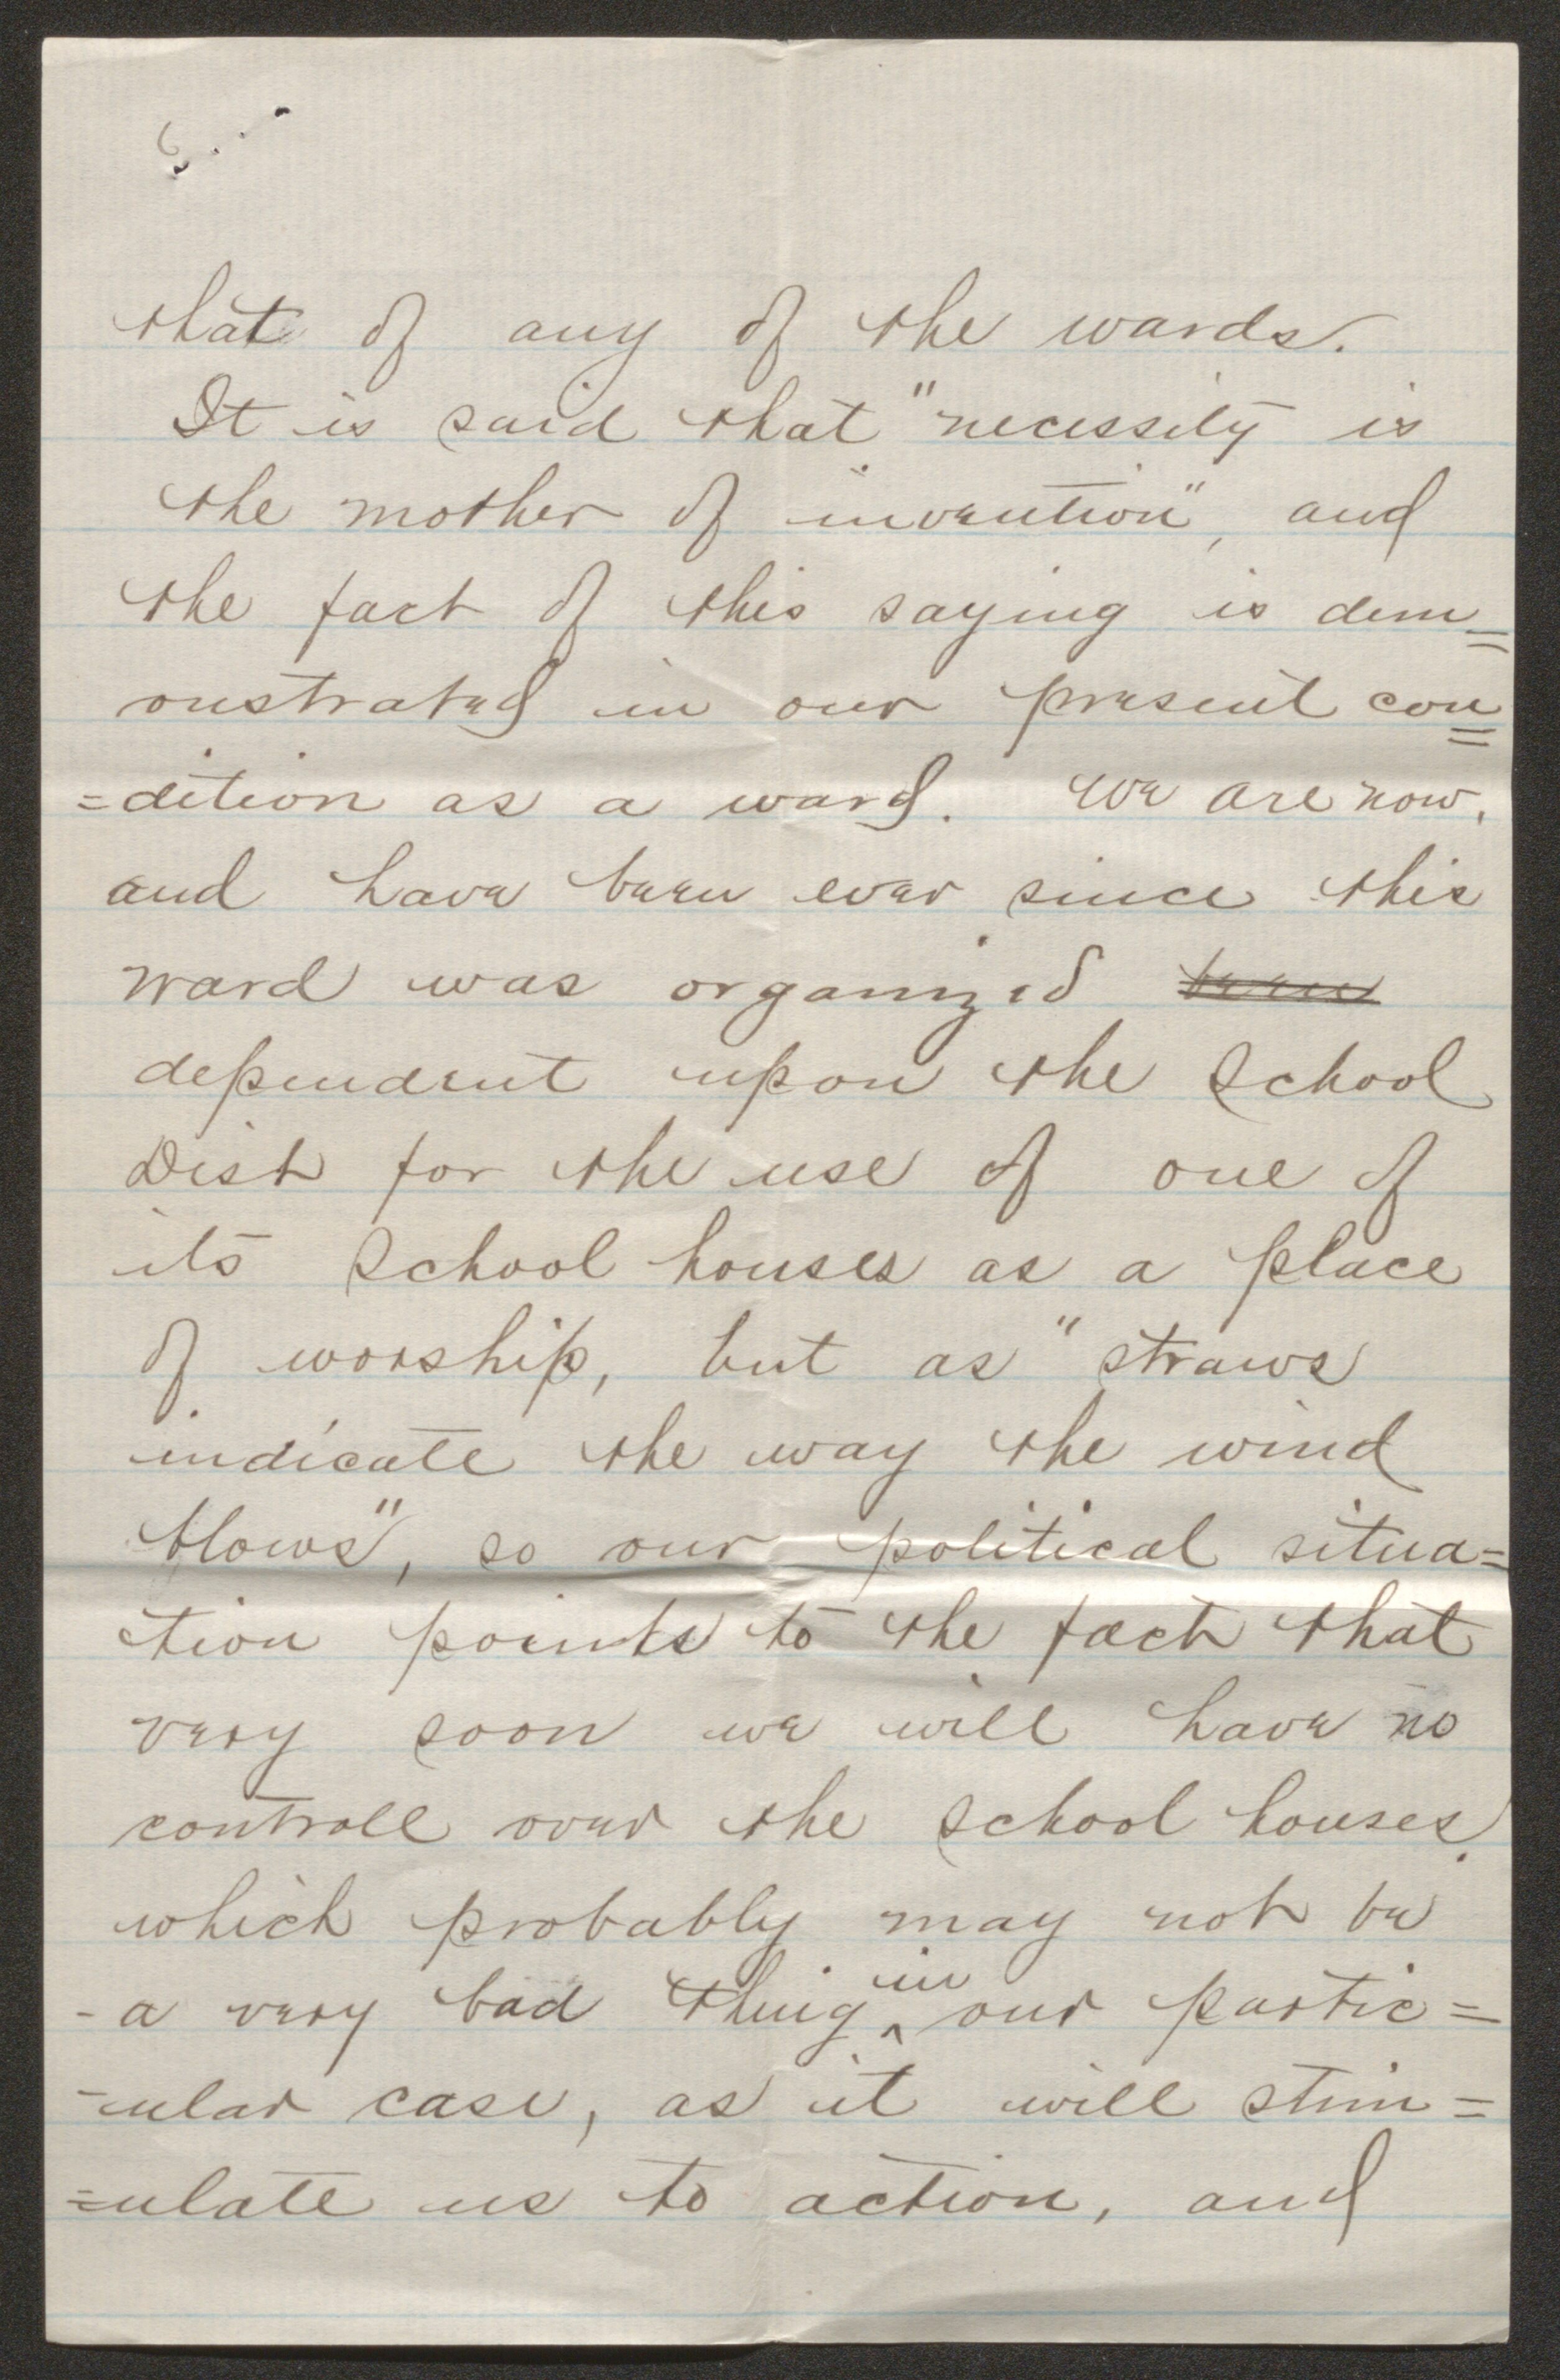 6
that of any of the wards.
It is said that "necessity is
the mother of invention", and
the fact of this saying is dem=
onstrated in our present con=
=dition as a ward. We are now,
and have been ever since this
ward was organized been
dependent upon the School
Dist for the use of one of
its School houses as a place
of worship, but as "straws
indicate the way the wind
blows", so our political situa=
tion points to the fact that
very soon we will have no
controll over the school houses.
which probably may not be
-a very bad thing in our partic=
=ular case, as it will stim=
=ulate us to action, and